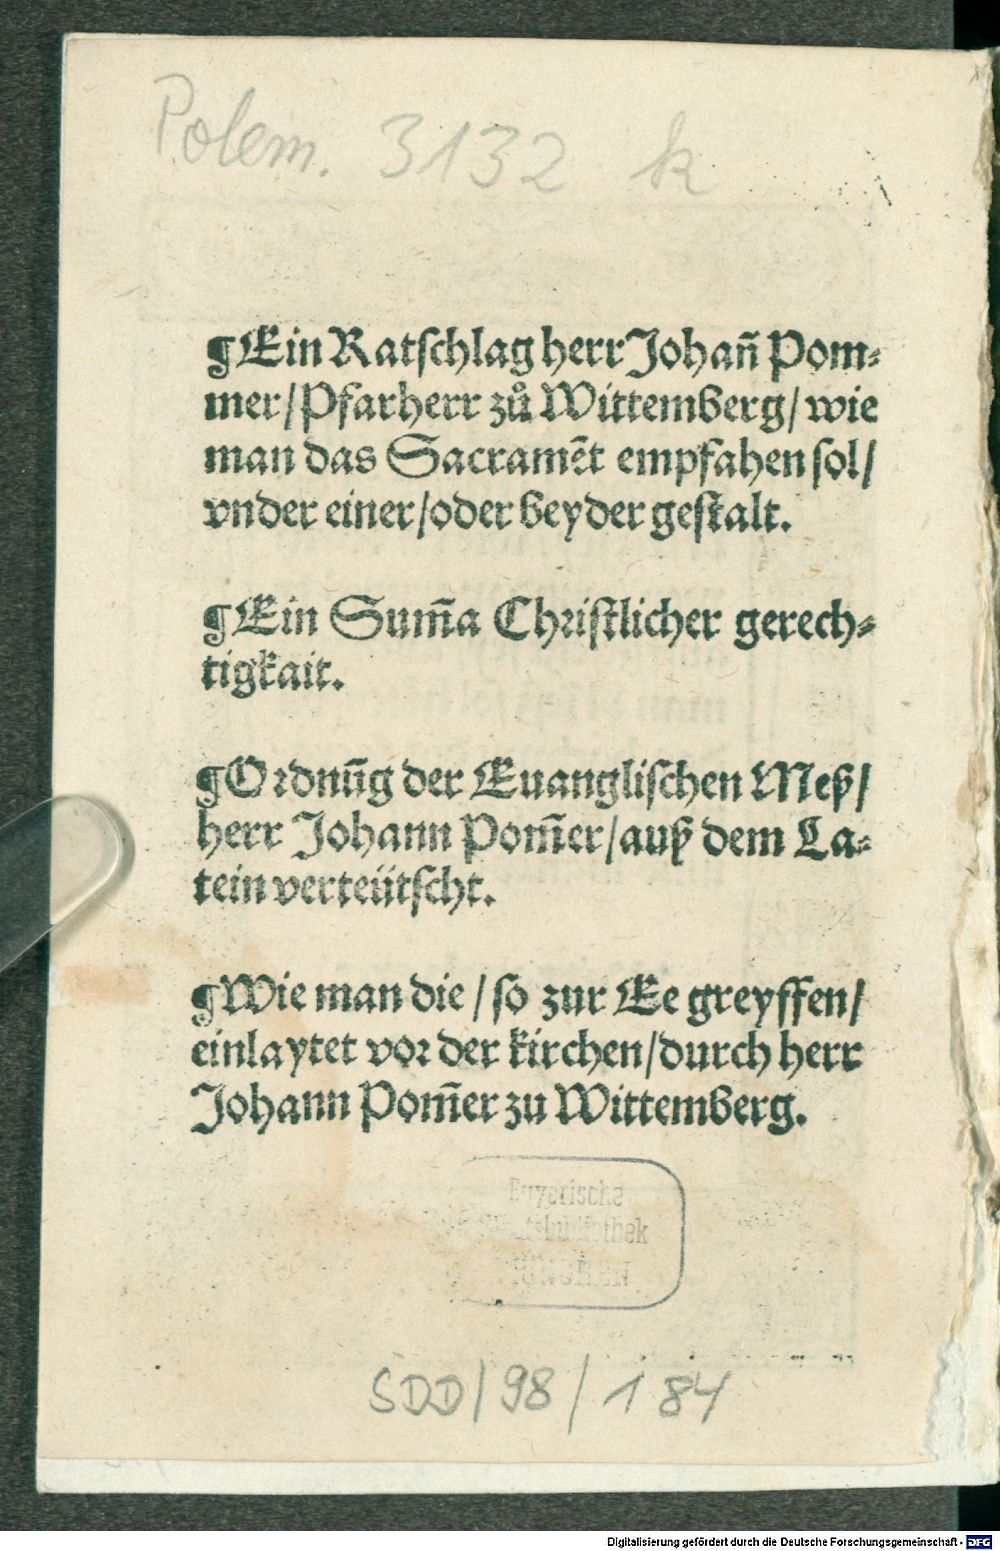 Polem. 3132 k
¶Ein Ratschlag herr Johañ Pom⸗
mer/Pfarherr zů Wittemberg/wie
man das Sacramēt empfahen sol/
vnder einer/oder beyder gestalt.
¶Ein Sum̄a Christlicher gerech⸗
tigkait.
¶Ordnūg der Euanglischen Meß/
herr Johann Pom̄er/auß dem La⸗
tein verteütscht.
¶Wie man die/so zur Ee greyffen/
einlaytet vor der kirchen/durch herr
Johann Pom̄er zu Wittemberg.
Bayerische
Staatsbibliothek
MÜNCHEN
SDD/98/184
Digitalisierung gefördert durch die Deutsche Forschungsgemeinschaft - DFG